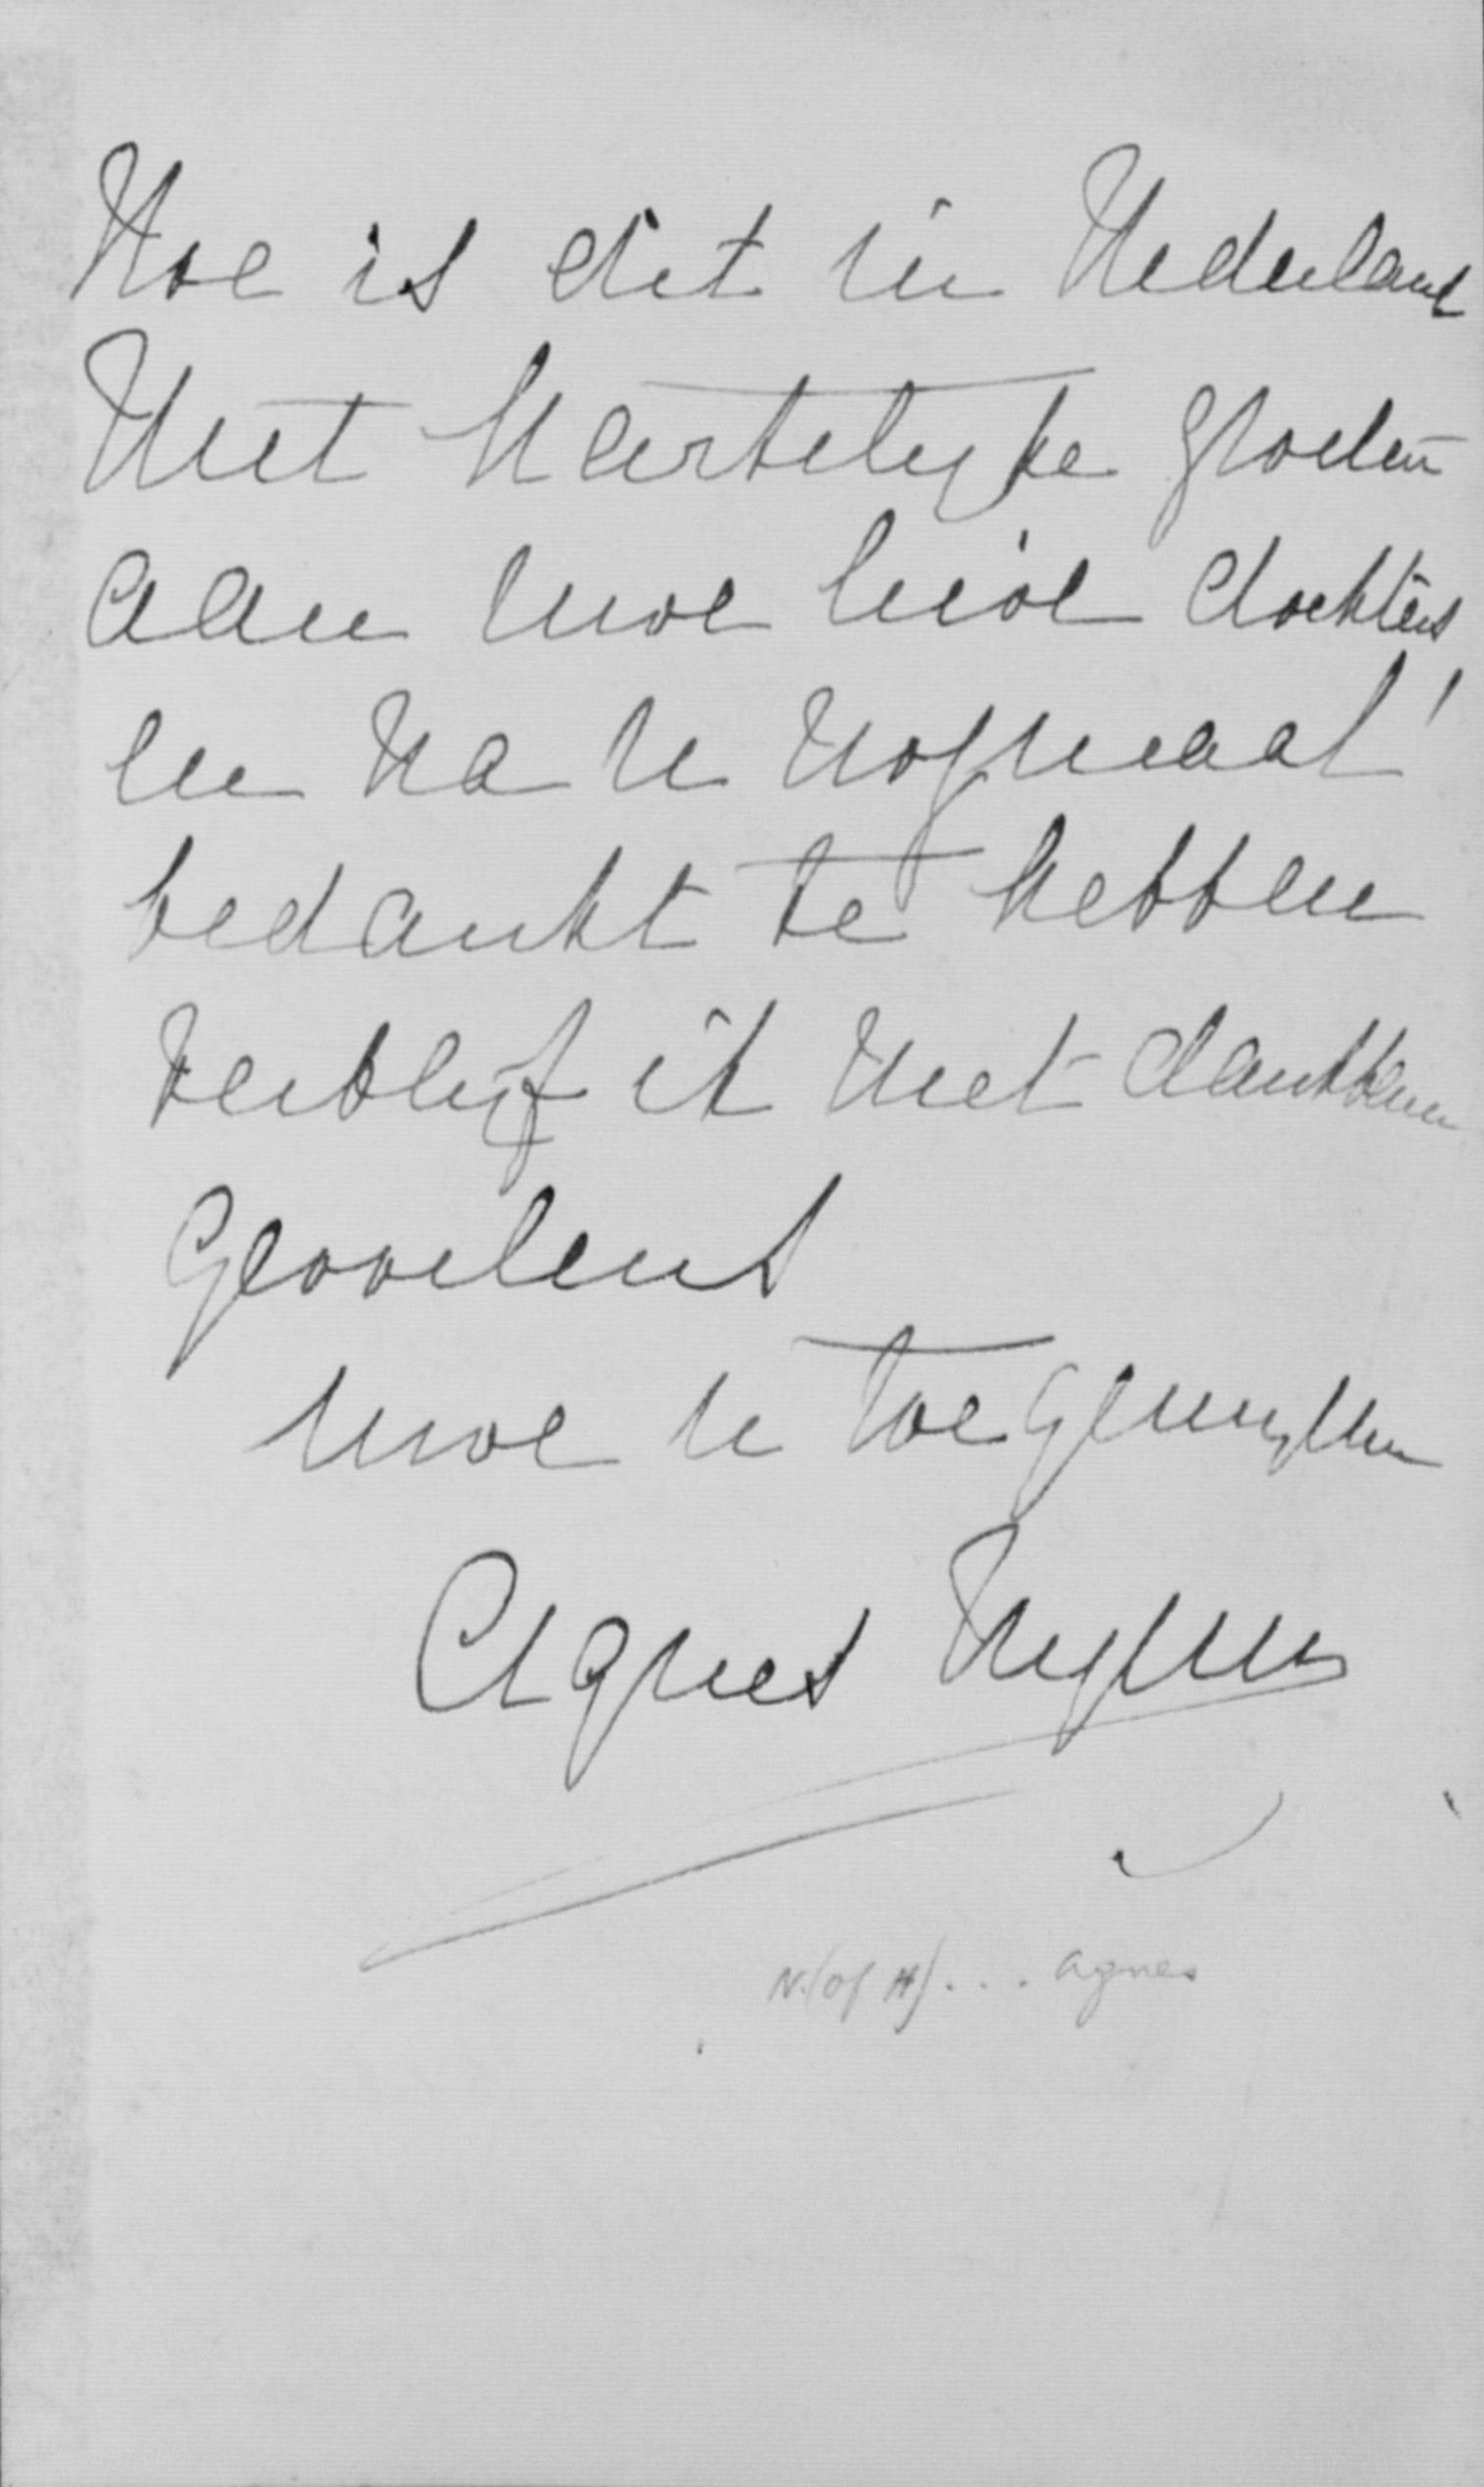 Hoe is dit in Nederland
Met hartelyke groeten
aan uwe lieve dochters
en na u nogmaal'
bedankt te hebben
verblyf ik met dankbaren
Gevoelens
uwe u toegenegen
Agnes
N. (of H) . . . Agnes